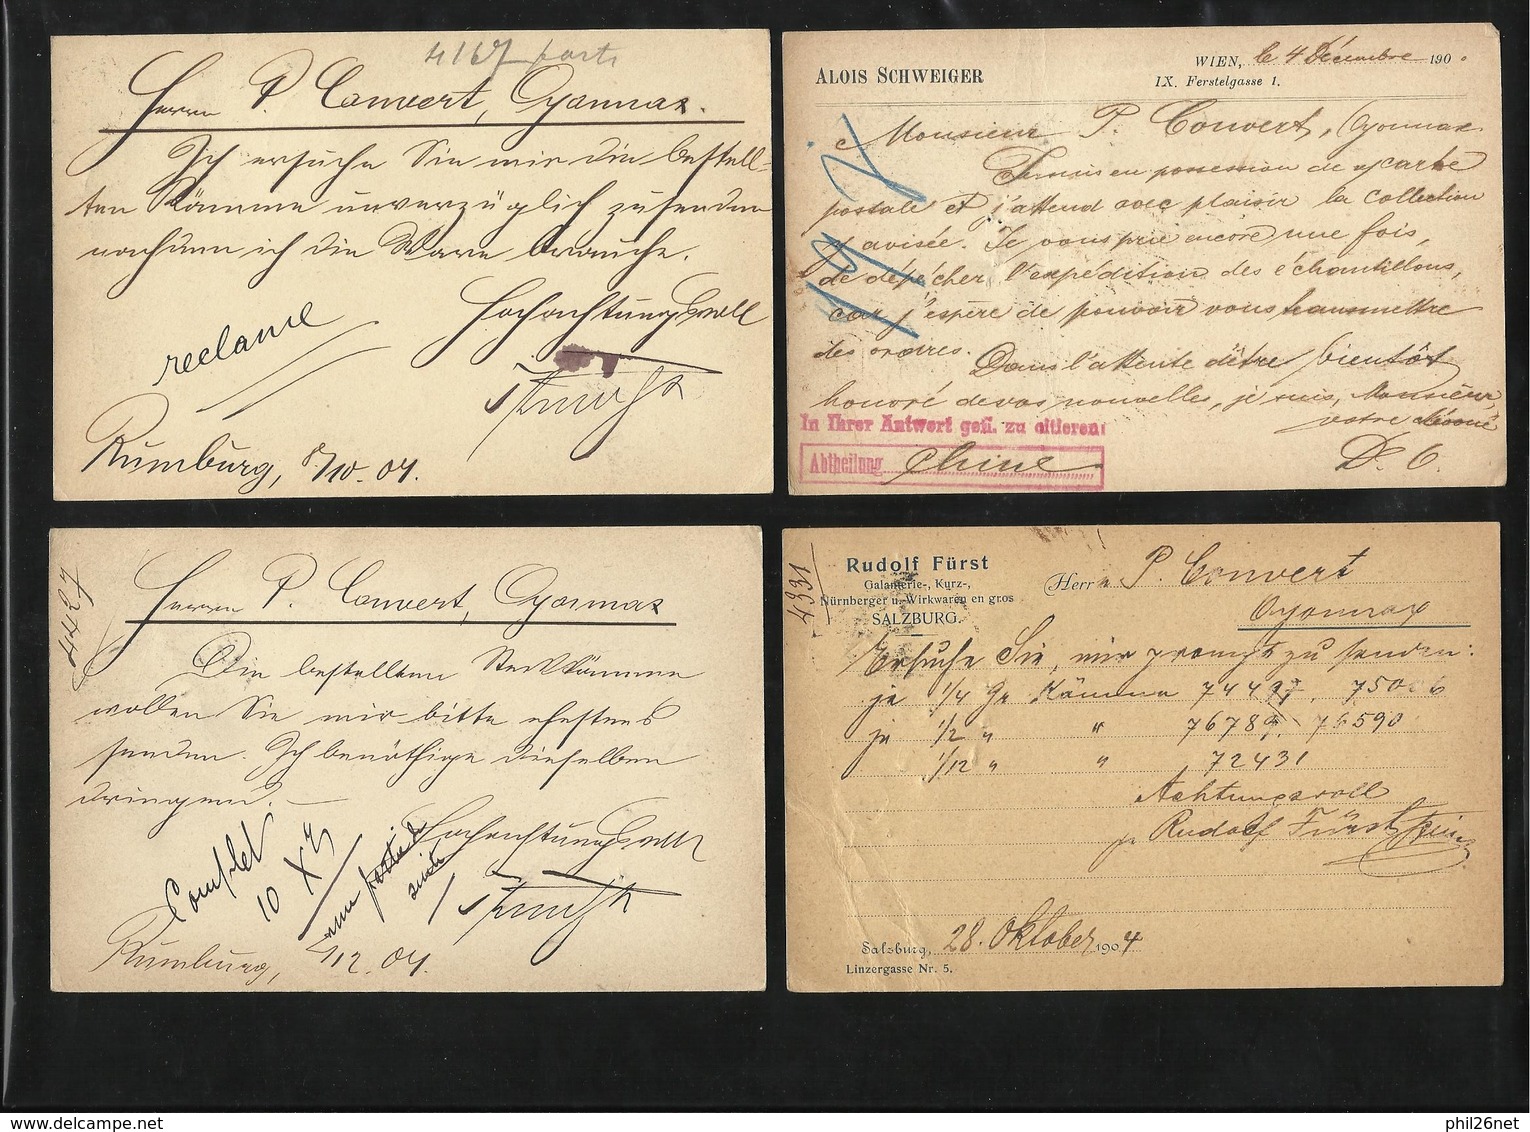 4167 parti
Herrn P. Convert, Oyonnax.
Ich ersuche Sie mir die bestell-
ten Kämme unverzüglich zusenden
nachdem ich die Ware brauche.
Hochachtungsvoll
reclame
Rumburg, 8/10.04.
ALOIS SCHWEIGER
WIEN, le 4 Décembre 190
IX. Ferstelgasse 1.
Monsieur P. Convert, Oyonnax
Je suis en possession de v/carte
postale et j'attend avec plaisir la collection
avisée. Je vous prie encore une fois,
de dépêcher l'expédition des échantillons,
car j'espère de pouvoir vous transmettre
des ordres.
Dans l'attente d'être bientôt
honoré de vos nouvelles, je suis, Monsieur,
votre dévoué
D. C.
In Ihrer Antwort gefl. zu citieren:
Abtheilung Chine
4427
Herrn P. Convert, Oyonnax
Die bestellten Steckkämme
wollen Sie mir bitte ehestens
senden. Ich benöthige dieselben
dringend.
Hochachtungsvoll
Complet
10 X
Rumburg, /12.04.
4331
Rudolf Fürst
Galanterie-, Kurz-,
Nürnberger u. Wirkwaren en gros
SALZBURG.
Herrn P. Convert
Oyonnax
Ersuche Sie, mir prompt zu senden:
je 1/4 Gr Kämme 74497, 75006
je 1/2 " " 76789. 76590
1/12 " " 72431
Achtungsvoll
Rudolf Fürst
Salzburg, 28. Oktober 1904
Linzergasse Nr. 5.
phil26net